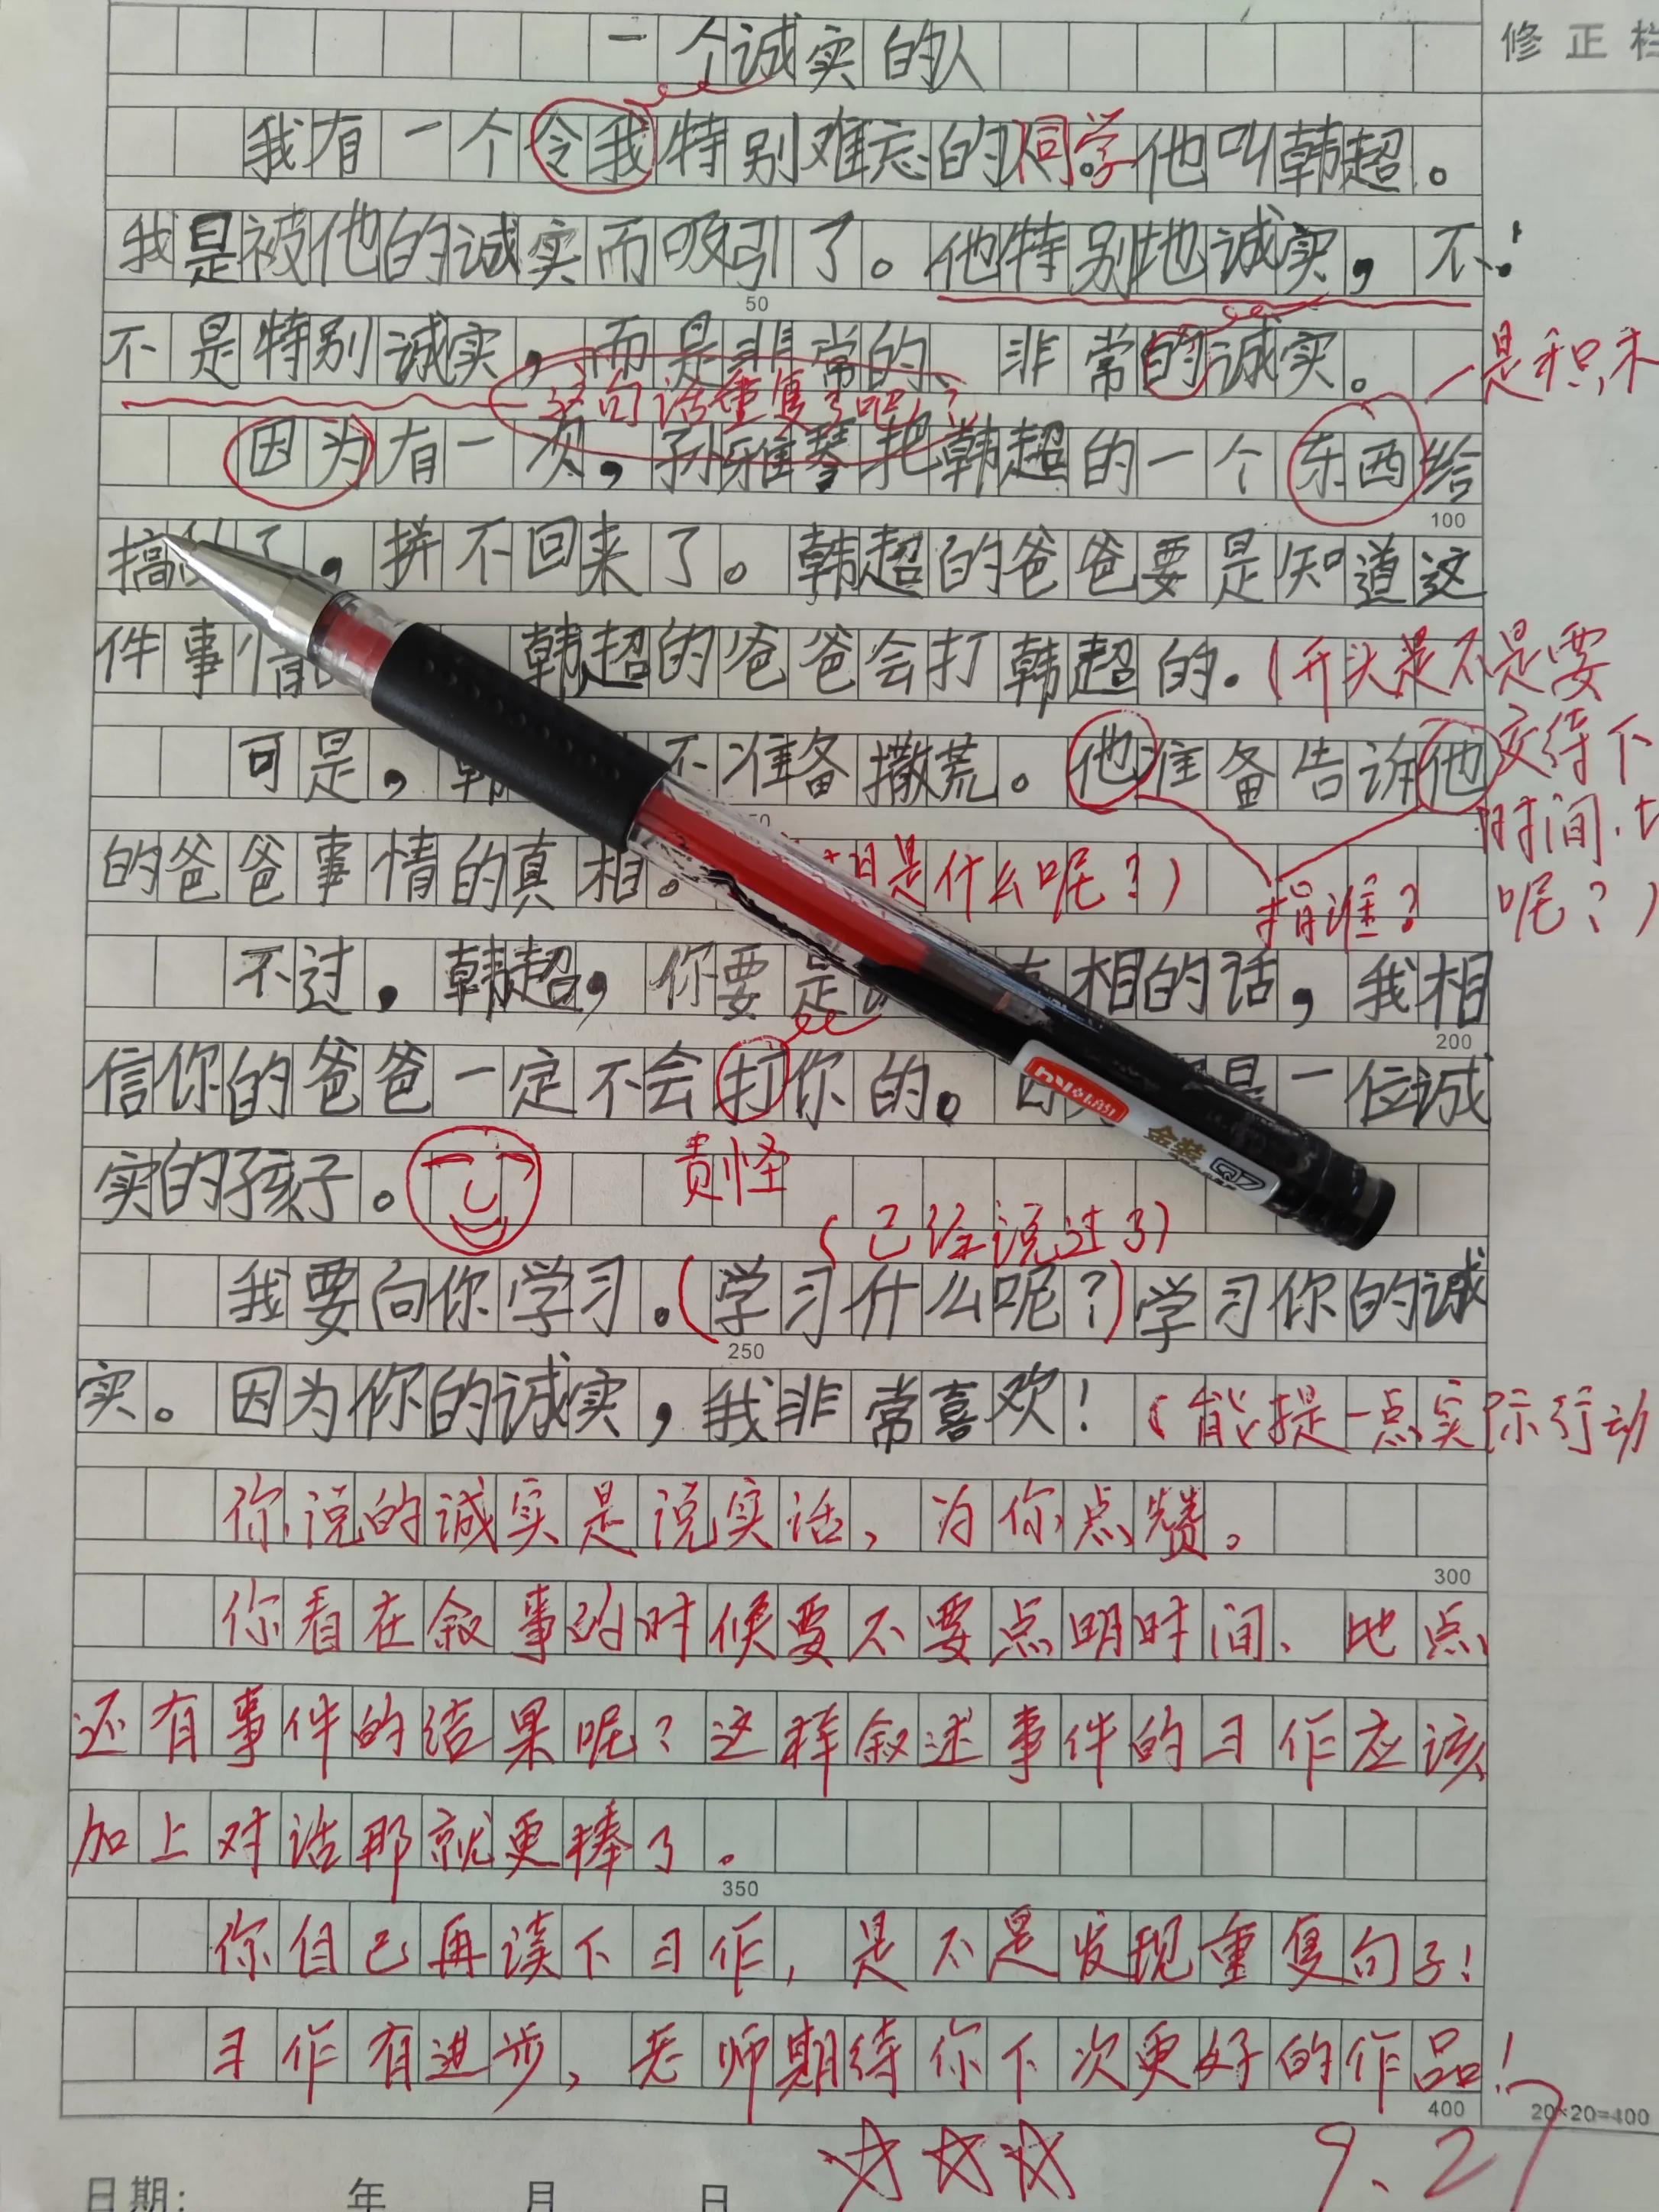 一个诚实的人
修正栏
我有一个令我特别难忘的同学他叫韩超。
我是被他的诚实而吸引了。他特别地诚实,不!
不是特别诚实,而是非常的、非常的诚实。
一是积木
这句话重复了吧?
因为有一次,孙雅琴把韩超的一个东西给
搞 了,拼不回来了。韩超的爸爸要是知道这
件事情 韩超的爸爸会打韩超的.
(开头是不是要
交待下
时间.
呢?)
可是, 不准备撒荒。他准备告诉他
的爸爸事情的真相。
是什么呢?)
指谁?
不过,韩超,你要是 相的话,我相
信你的爸爸一定不会打你的。 是一位诚
实的孩子。
责怪
(已经说过了)
我要向你学习.(学习什么呢?)学习你的诚
实。因为你的诚实,我非常喜欢!
(能提一点实际行动
你说的诚实是说实话、为你点赞。
你看在叙事的时候要不要点明时间、地点、
还有事件的结果呢?这样叙述事件的习作应该
加上对话那就更棒了.
你自己再读下习作,是不是发现重复句子!
习作有进步,老师期待你下次更好的作品!
50
100
200
250
300
350
400
20×20=400
金装
9.27
日期: 年 月 日